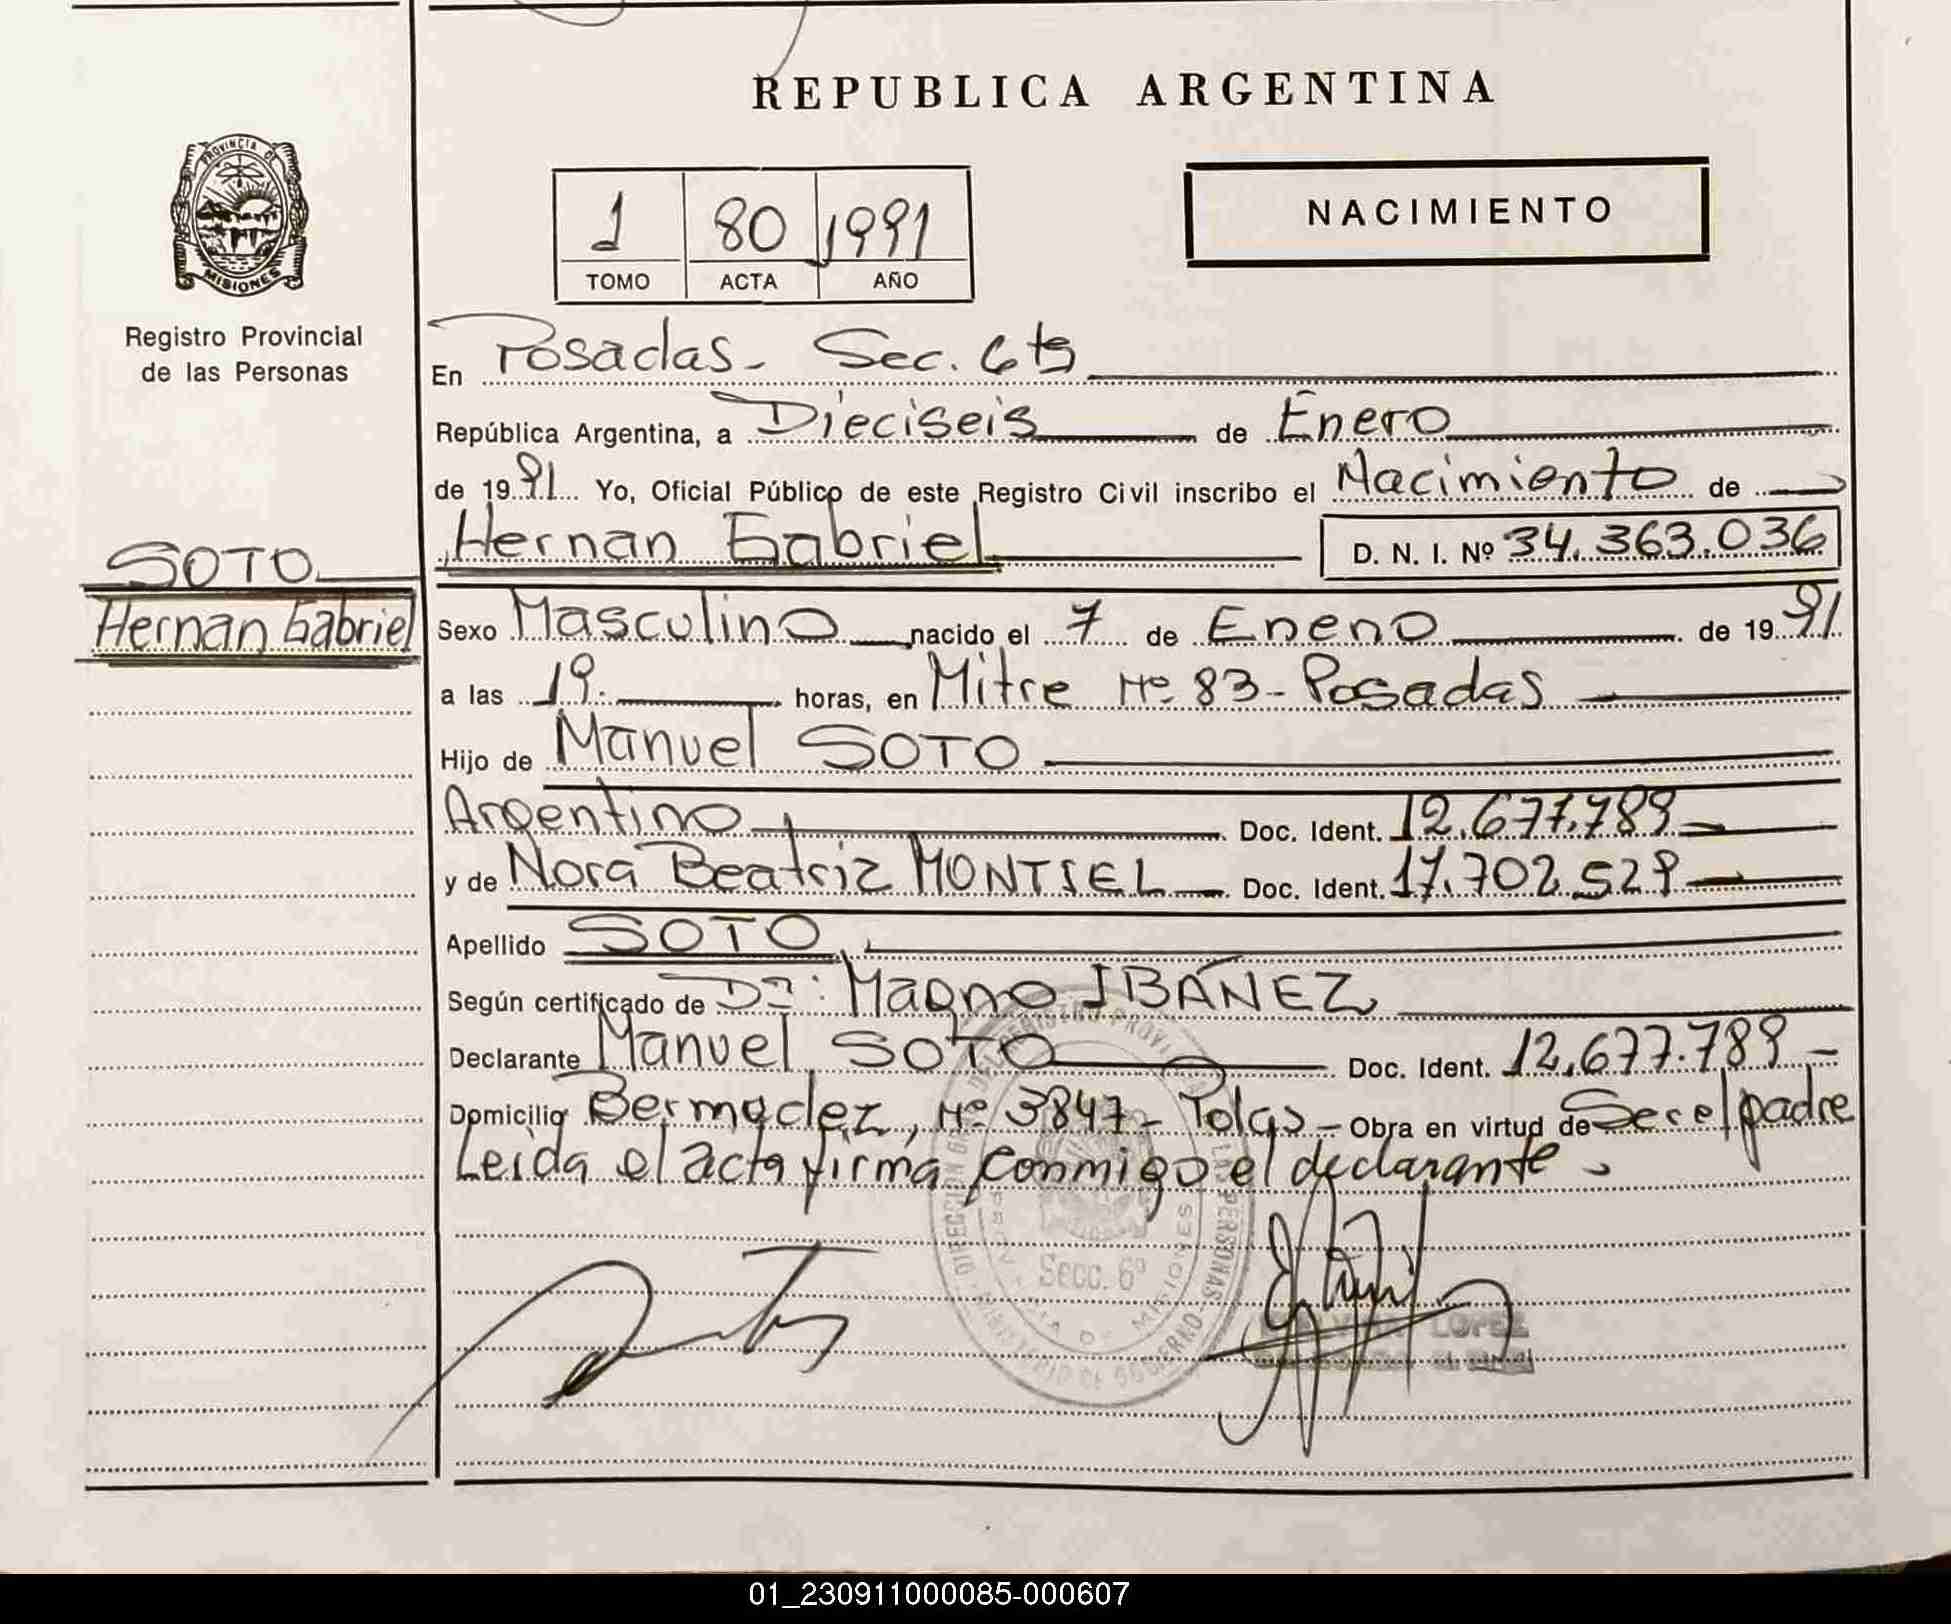 REPUBLICA ARGENTINA
PROVINCIA DE
MISIONES
Registro Provincial
de las Personas
1 80 1991
TOMO ACTA AÑO
NACIMIENTO
En Posadas - Sec. 6ta
República Argentina, a Dieciseis de Enero
de 1991 Yo, Oficial Público de este Registro Civil inscribo el Nacimiento de
Hernan Gabriel D. N. I. Nº 34.363.036
SOTO
Hernan Gabriel
Sexo Masculino nacido el 7 de Enero de 1991
a las 19. horas, en Mitre Nº 83 - Posadas
Hijo de Manuel SOTO
Argentino Doc. Ident. 12.677.789
y de Nora Beatriz MONTIEL Doc. Ident. 17.702.529
Apellido SOTO
Según certificado de Magno IBAÑEZ
Declarante Manuel SOTO Doc. Ident. 12.677.789
Domicilio Bermudez, Nº 3847 - Obra en virtud de Ser el padre
Leida el acta firma conmigo el declarante.
Secc. 6º
LOPEZ
01_230911000085-000607